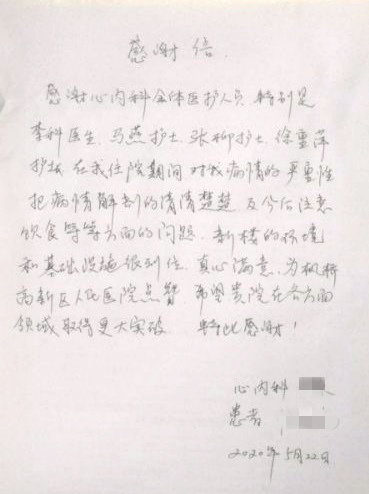 感谢信.
感谢心内科全体医护人员.特别是
李科医生.马燕护士.张柳护士.徐重萍
护士.在我住院期间对我病情的严重性
把病情解剖的清清楚楚 及今后注意
饮食等等方面的问题.新楼的环境
和基础设施很到位.真心满意.为枫桥
高新区人民医院点赞.希望贵院在各方面
领域取得更大突破 特此感谢!
心内科
患者
2020年5月22日